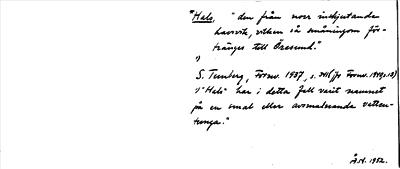 "Hals, "den från norr inskjutande
havsvik, vilken så småningom för-
tränges till Öresund."
1)
S. Tunberg, Fornv. 1937, s. 341 (jfr Fornv. 1940, s.
1) "Hals" har i detta fall varit namnet
på en smal eller avsmalnande vatten-
tunga."
Å.H. 1952.